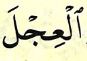 ٱلْعِجْلَ